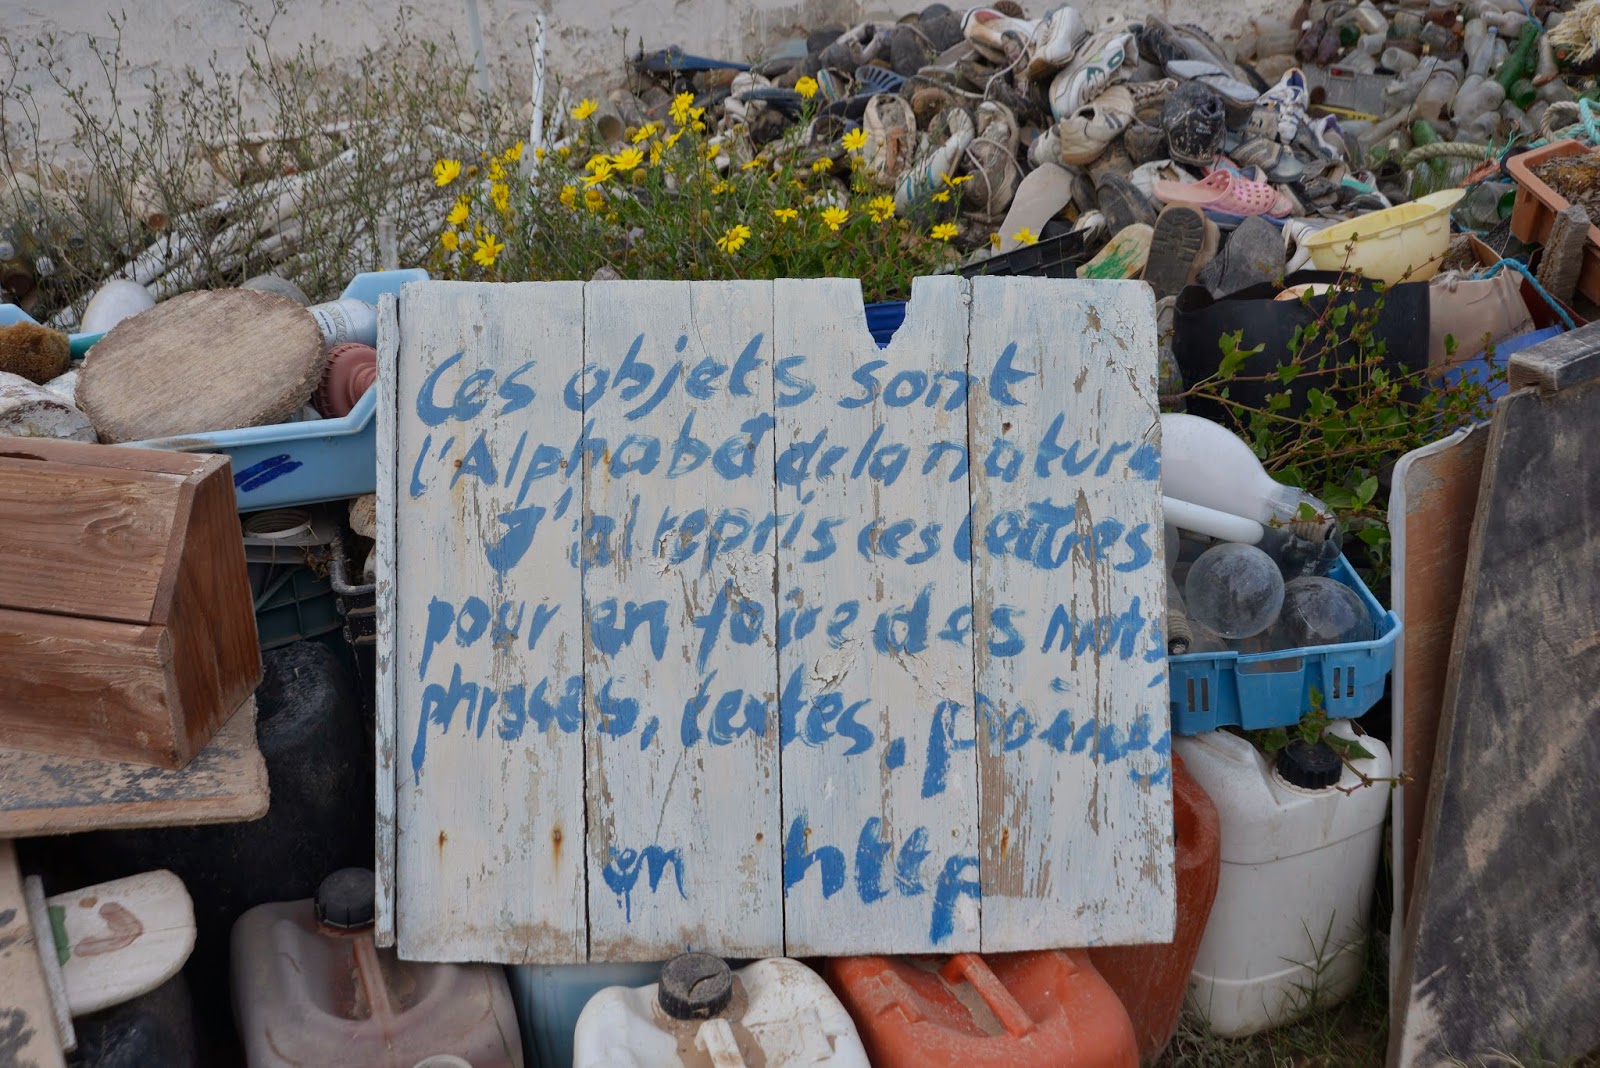 Ces objets sont
l'Alphabet de la nature
J'ai repris ces lettres
pour en faire des mots
phrases, textes, poèmes
en http